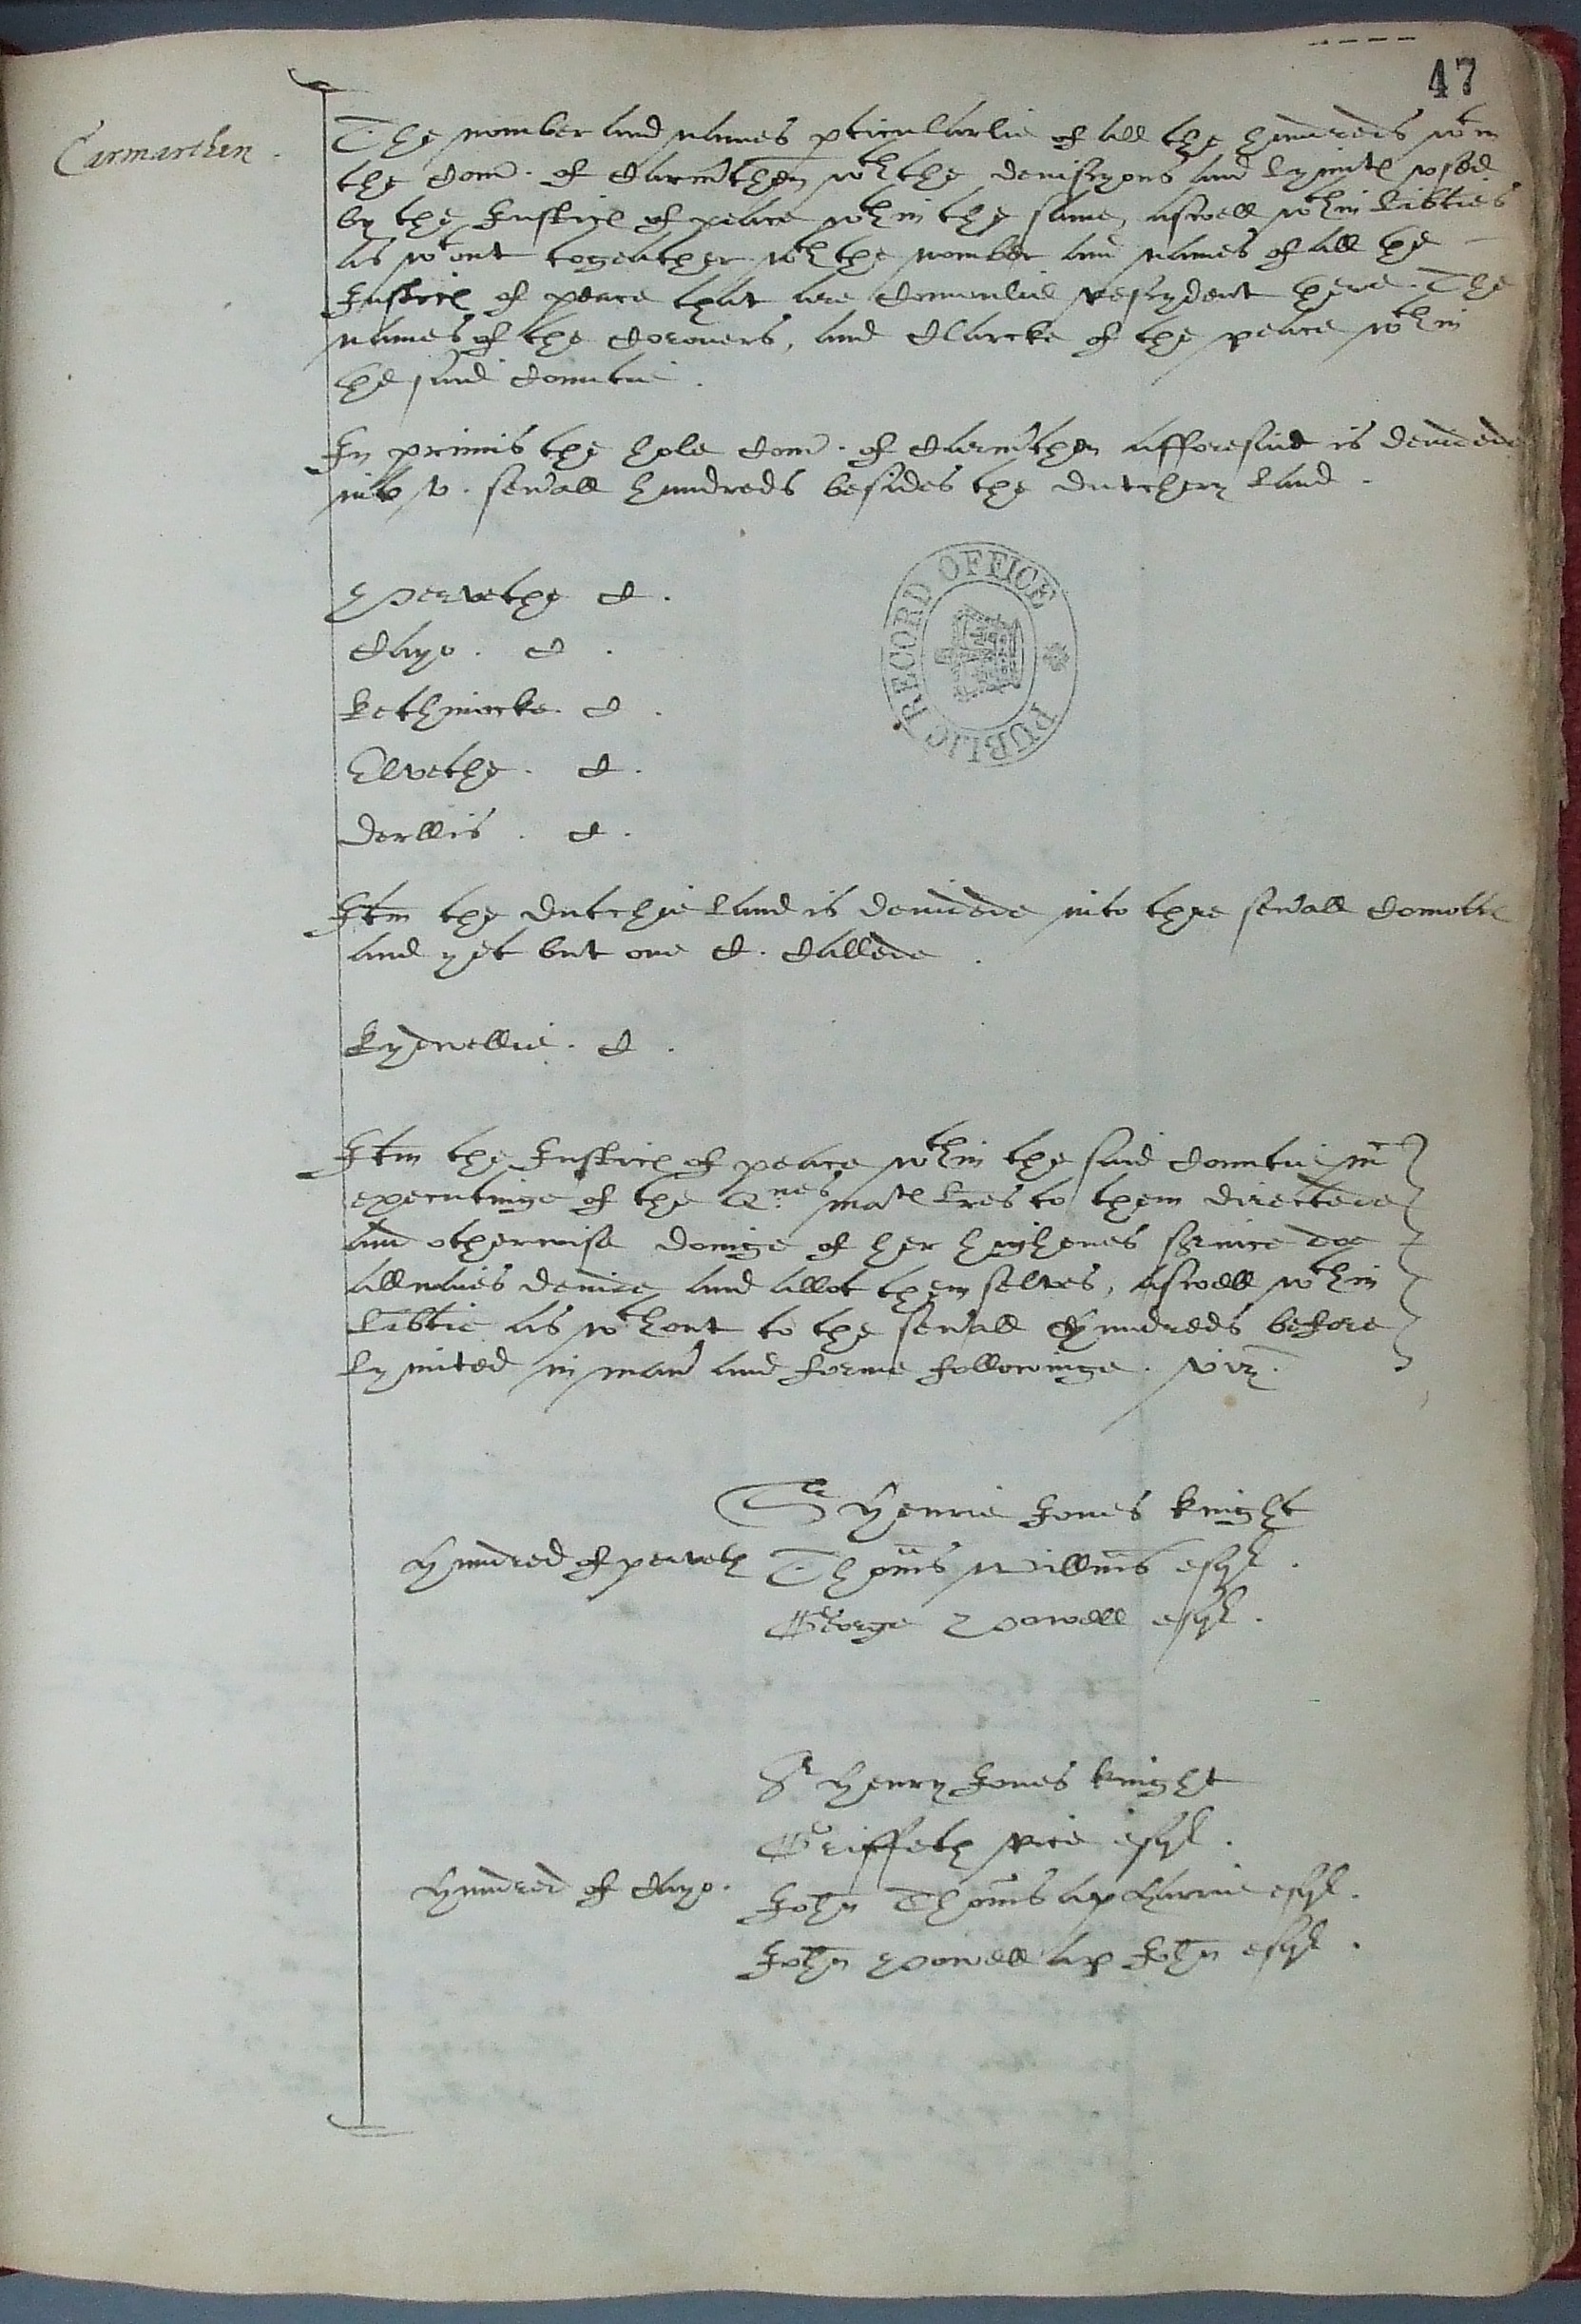 47
Carmarthen.
The nomber and names pticularlie of all the hundreds wtin
the Com. of Carmthen wth the devisyons and lymitℓ vsed
by the Justicℓ of peace wthin the same, aswell wthin libties
as wtout togeather wth the nomber and names of all the
Justicℓ of peace that are Comonlie resydent there. The
names of the Coroners, and Clarcke of the peace wthin
the said Countie.
In primis the hole Com. of Carmthen afforesaid is devided
into v. seuall hundreds besides the Dutchery land.
Pervethe C.
Cayo. C.
Kethinocke. C.
Elvethe. C.
Derllis. C.
Itm the Dutchie land is devidede into thre seuall Comottℓ
and yet but one C. Callede.
Kydwellie. C.
Itm the Justicℓ of peace wthin the said Countie in
executinge of the Q:nes matℓ lres to them directede
and otherwise doinge of her heighenes service doe
allwaies devide and allot them selves, aswell wthin
libtie as wthout to the seuall Hundreds before
lymited in man and forme followinge. viz.
Sr Henrie Jones knight
Hundred of perveth
Thoms Willms esqr.
George Powell esqr.
Sr Henry Jones knight
Griffeth Rice esqr.
Hundred of Cayo.
John Thoms ap Harrie esqr.
John Powell ap John esqr.
PUBLIC RECORD OFFICE